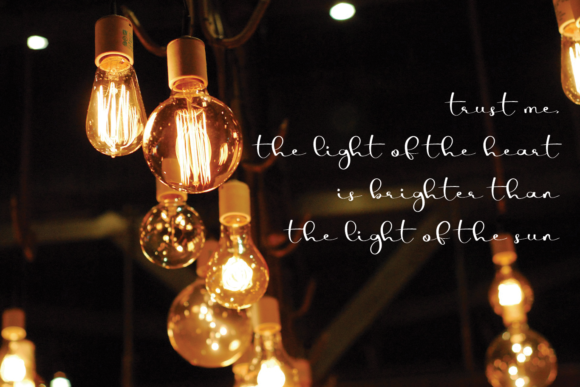 trust me,
the light of the heart
is brighter than
the light of the sun